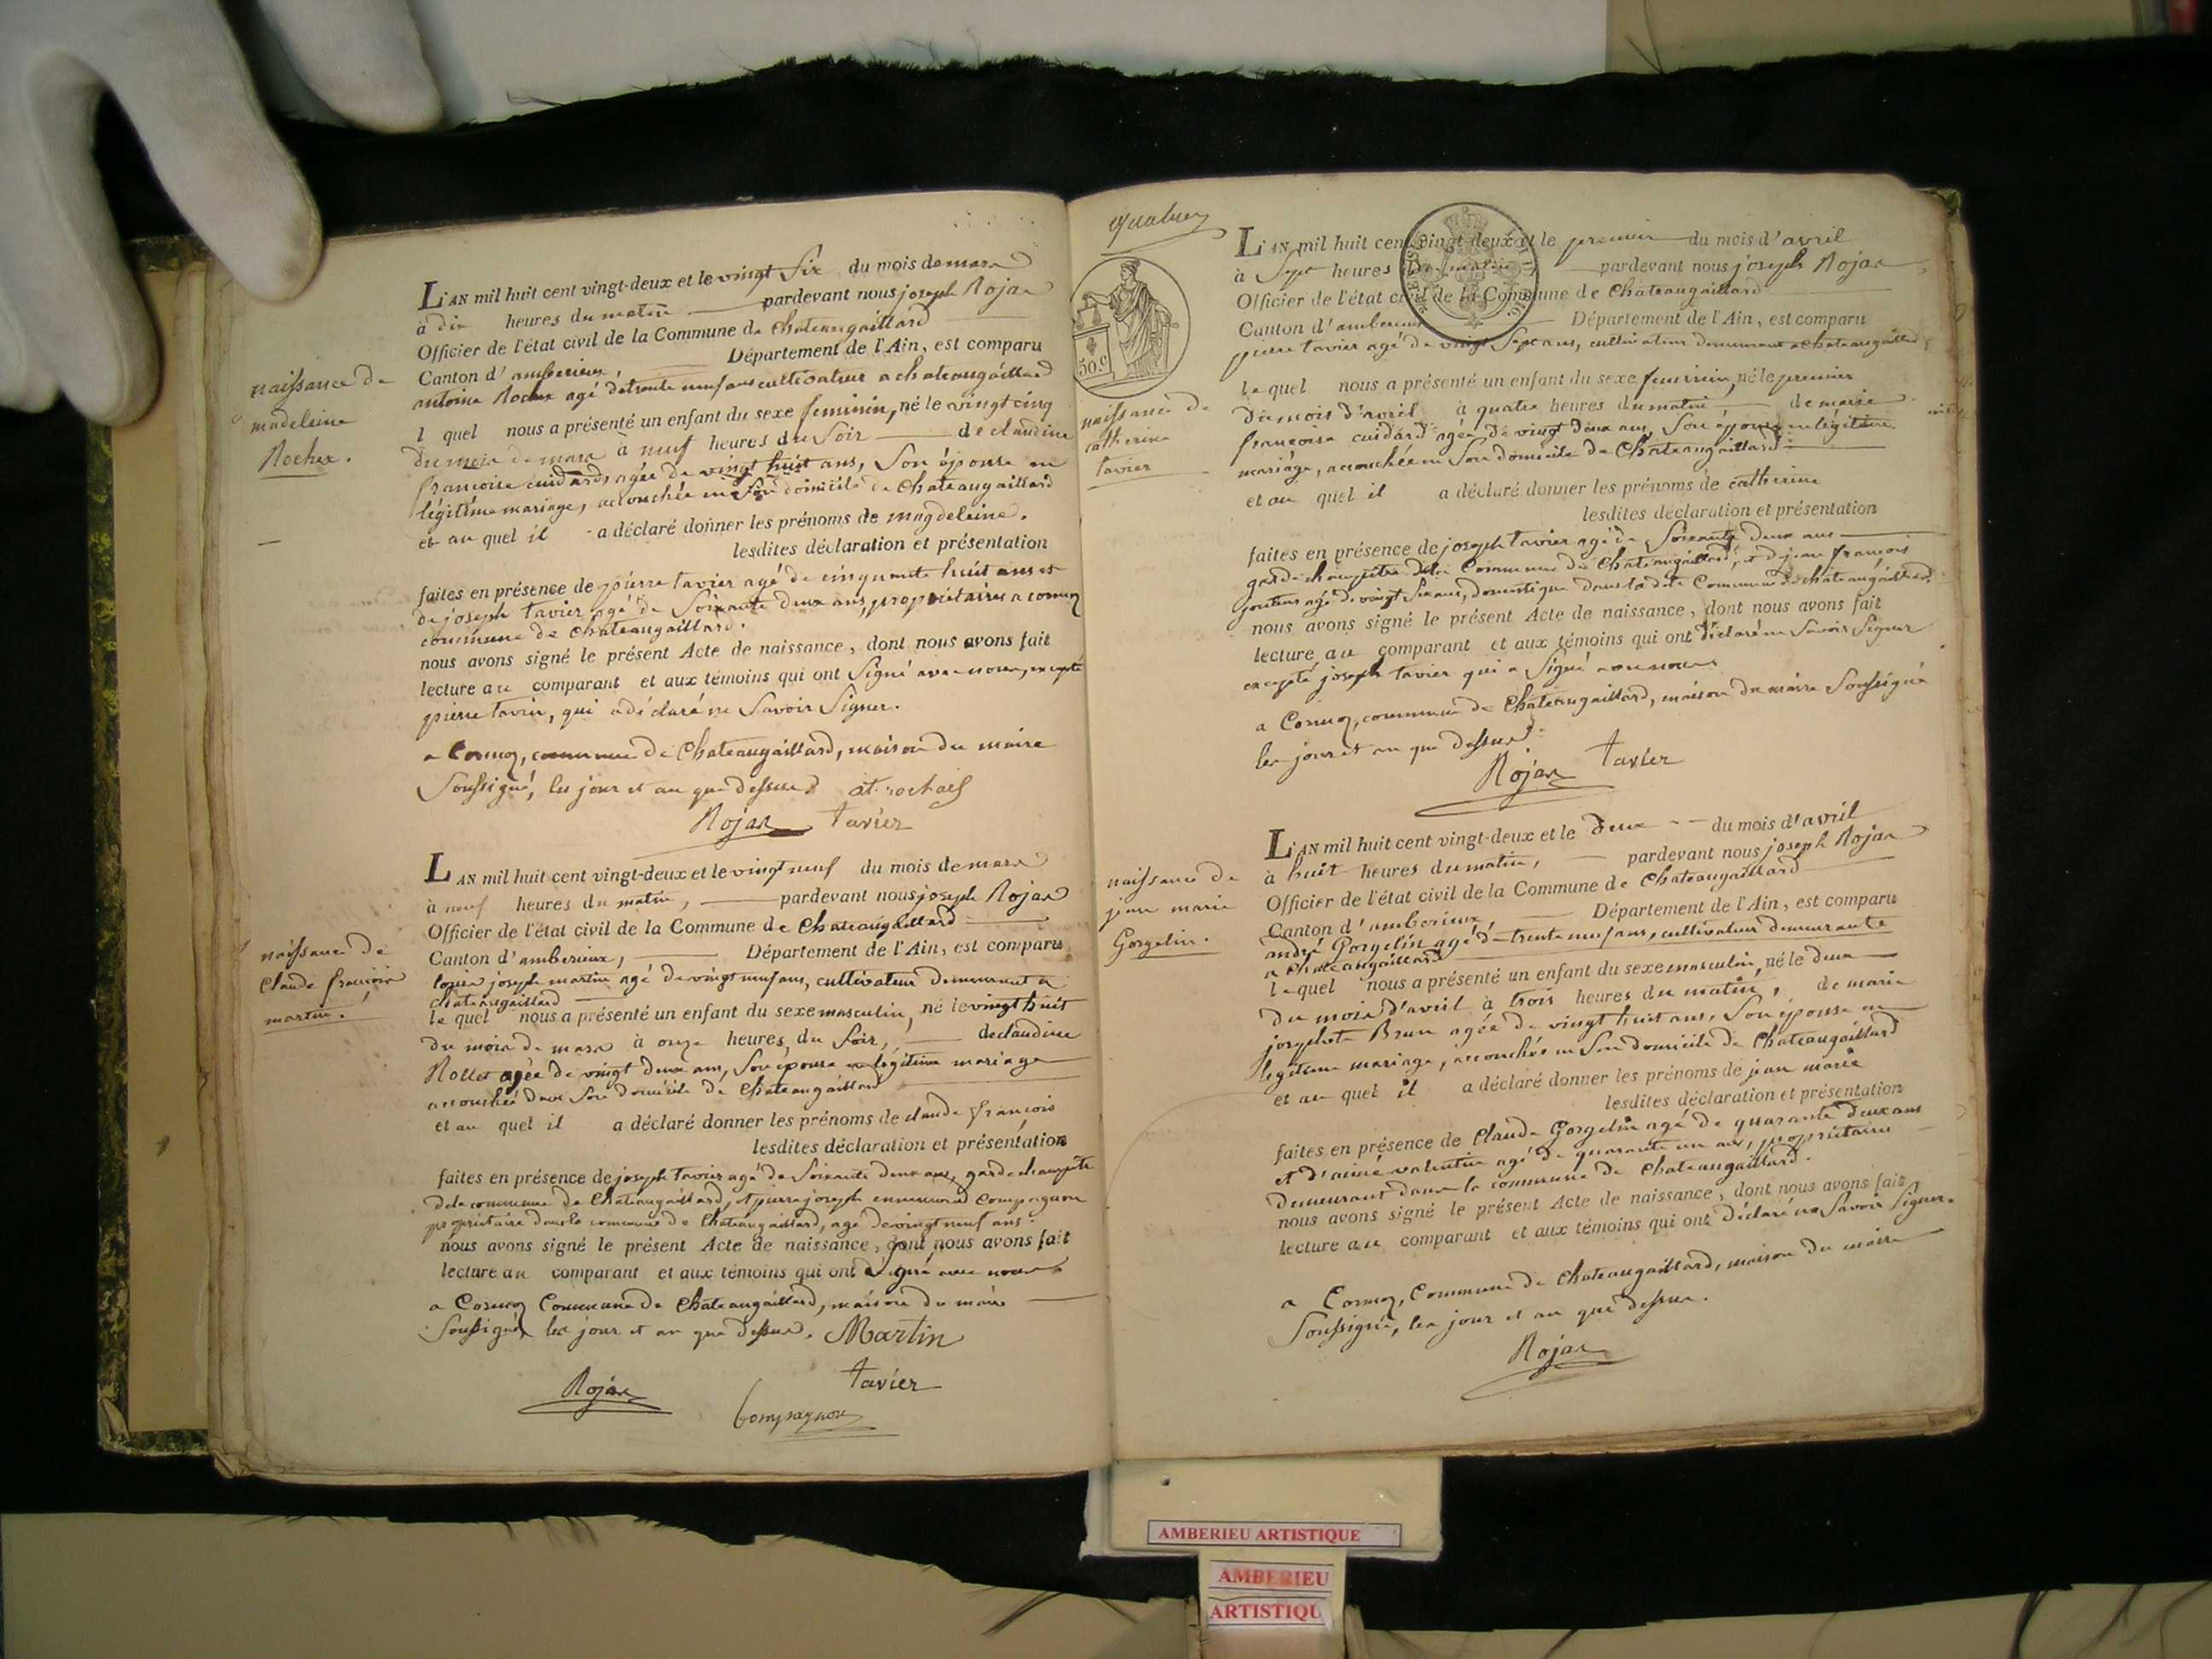 naissance de
madeleine
Rochex.
L'AN mil huit cent vingt-deux et le vingt six du mois de mars
à dix heures du matin pardevant nous joseph Rojas
Officier de l'état civil de la Commune de Chateaugaillard
Canton d'amberieux, Département de l'Ain, est comparu
antoine Rochex agé de trente neuf ans cultivateur a chateaugaillard
l quel nous a présenté un enfant du sexe feminin, né le vingt cinq
du mois de mars à neuf heures du soir de claudine
francoise cuidard, agée de vingt huit ans, son épouse en
légitime mariage, accouchée en son domicile de Chateaugaillard
et au quel il a déclaré donner les prénoms de magdeleine.
lesdites déclaration et présentation
faites en présence de pierre tavier agé de cinquante huit ans et
de joseph tavier agé de soixante deux ans, propriétaires a cormoz
commune de chateaugaillard.
nous avons signé le présent Acte de naissance, dont nous avons fait
lecture au comparant et aux témoins qui ont signé avec nous, excepté
pierre tavier, qui a déclaré ne savoir signer.
a Cormoz, commune de Chateaugaillard, maison du maire
soussigné, les jour et an que dessus
Rojas tavier
naissance de
Claude françois
martin.
L'AN mil huit cent vingt-deux et le vingt neuf du mois de mars
à neuf heures du matin, pardevant nous joseph Rojas
Officier de l'état civil de la Commune de Chateaugaillard
Canton d'amberieux, Département de l'Ain, est comparu
louis joseph martin agé de vingt neuf ans, cultivateur demeurant a
chateaugaillard
le quel nous a présenté un enfant du sexe masculin, né le vingt huit
du mois de mars à onze heures du soir, de claudine
Rollet agée de vingt deux ans, son épouse en légitime mariage
accouchée dans son domicile de Chateaugaillard
et au quel il a déclaré donner les prénoms de claude françois
lesdites déclaration et présentation
faites en présence de joseph tavier agé de soixante deux ans, garde champêtre
de la commune de Chateaugaillard, et pierre joseph Compagnon
propriétaire dans la commune de Chateaugaillard, agé de vingt neuf ans.
nous avons signé le présent Acte de naissance, dont nous avons fait
lecture au comparant et aux témoins qui ont signé avec nous
a Cormoz Commune de Chateaugaillard, maison du maire
soussigné, les jour et an que dessus. Martin
Rojas tavier
Compagnon
50.c
naissance de
catherine
tavier
L'AN mil huit cent vingt-deux et le premier du mois d'avril
à sept heures du matin pardevant nous joseph Rojas
Officier de l'état civil de la Commune de Chateaugaillard
Canton d'amberieux Département de l'Ain, est comparu
pierre tavier agé de vingt sept ans, cultivateur demeurant a chateaugaillard,
le quel nous a présenté un enfant du sexe feminin, né le premier
du mois d'avril à quatre heures du matin de marie
francoise cuidard agée de vingt deux ans, son épouse en légitime
mariage, accouchée en son domicile de Chateaugaillard
et au quel il a déclaré donner les prénoms de catherine
lesdites déclaration et présentation
faites en présence de joseph tavier agé de soixante deux ans
garde champêtre de la Commune de Chateaugaillard, et de jean françois
agé de vingt six ans, domestique dans la dite Commune de chateaugaillard.
nous avons signé le présent Acte de naissance, dont nous avons fait
lecture au comparant et aux témoins qui ont déclaré ne savoir signer
excepté joseph tavier qui a signé avec nous
a Cormoz, commune de Chateaugaillard, maison du maire soussigné
les jour et an que dessus.
Rojas tavier
naissance de
jean marie
Gorgelin.
L'AN mil huit cent vingt-deux et le deux du mois d'avril
à huit heures du matin, pardevant nous joseph Rojas
Officier de l'état civil de la Commune de Chateaugaillard
Canton d'amberieux, Département de l'Ain, est comparu
andré Gorgelin agé de trente neuf ans, cultivateur demeurante
a chateaugaillard
le quel nous a présenté un enfant du sexe masculin, né le deux
du mois d'avril à trois heures du matin, de marie
josephete Brun agée de vingt huit ans, son épouse en
légitime mariage, accouchée en son domicile de Chateaugaillard
et au quel il a déclaré donner les prénoms de jean marie
lesdites déclaration et présentation
faites en présence de Claude Gorgelin agé de quarante deux ans
et d'aimé valentin agé de quarante un ans, propriétaires
demeurant dans la commune de Chateaugaillard.
nous avons signé le présent Acte de naissance, dont nous avons fait
lecture au comparant et aux témoins qui ont déclaré ne savoir signer.
a Cormoz, Commune de Chateaugaillard, maison du maire
soussigné, les jour et an que dessus.
Rojas
AMBERIEU ARTISTIQUE
AMBERIEU
ARTISTIQU